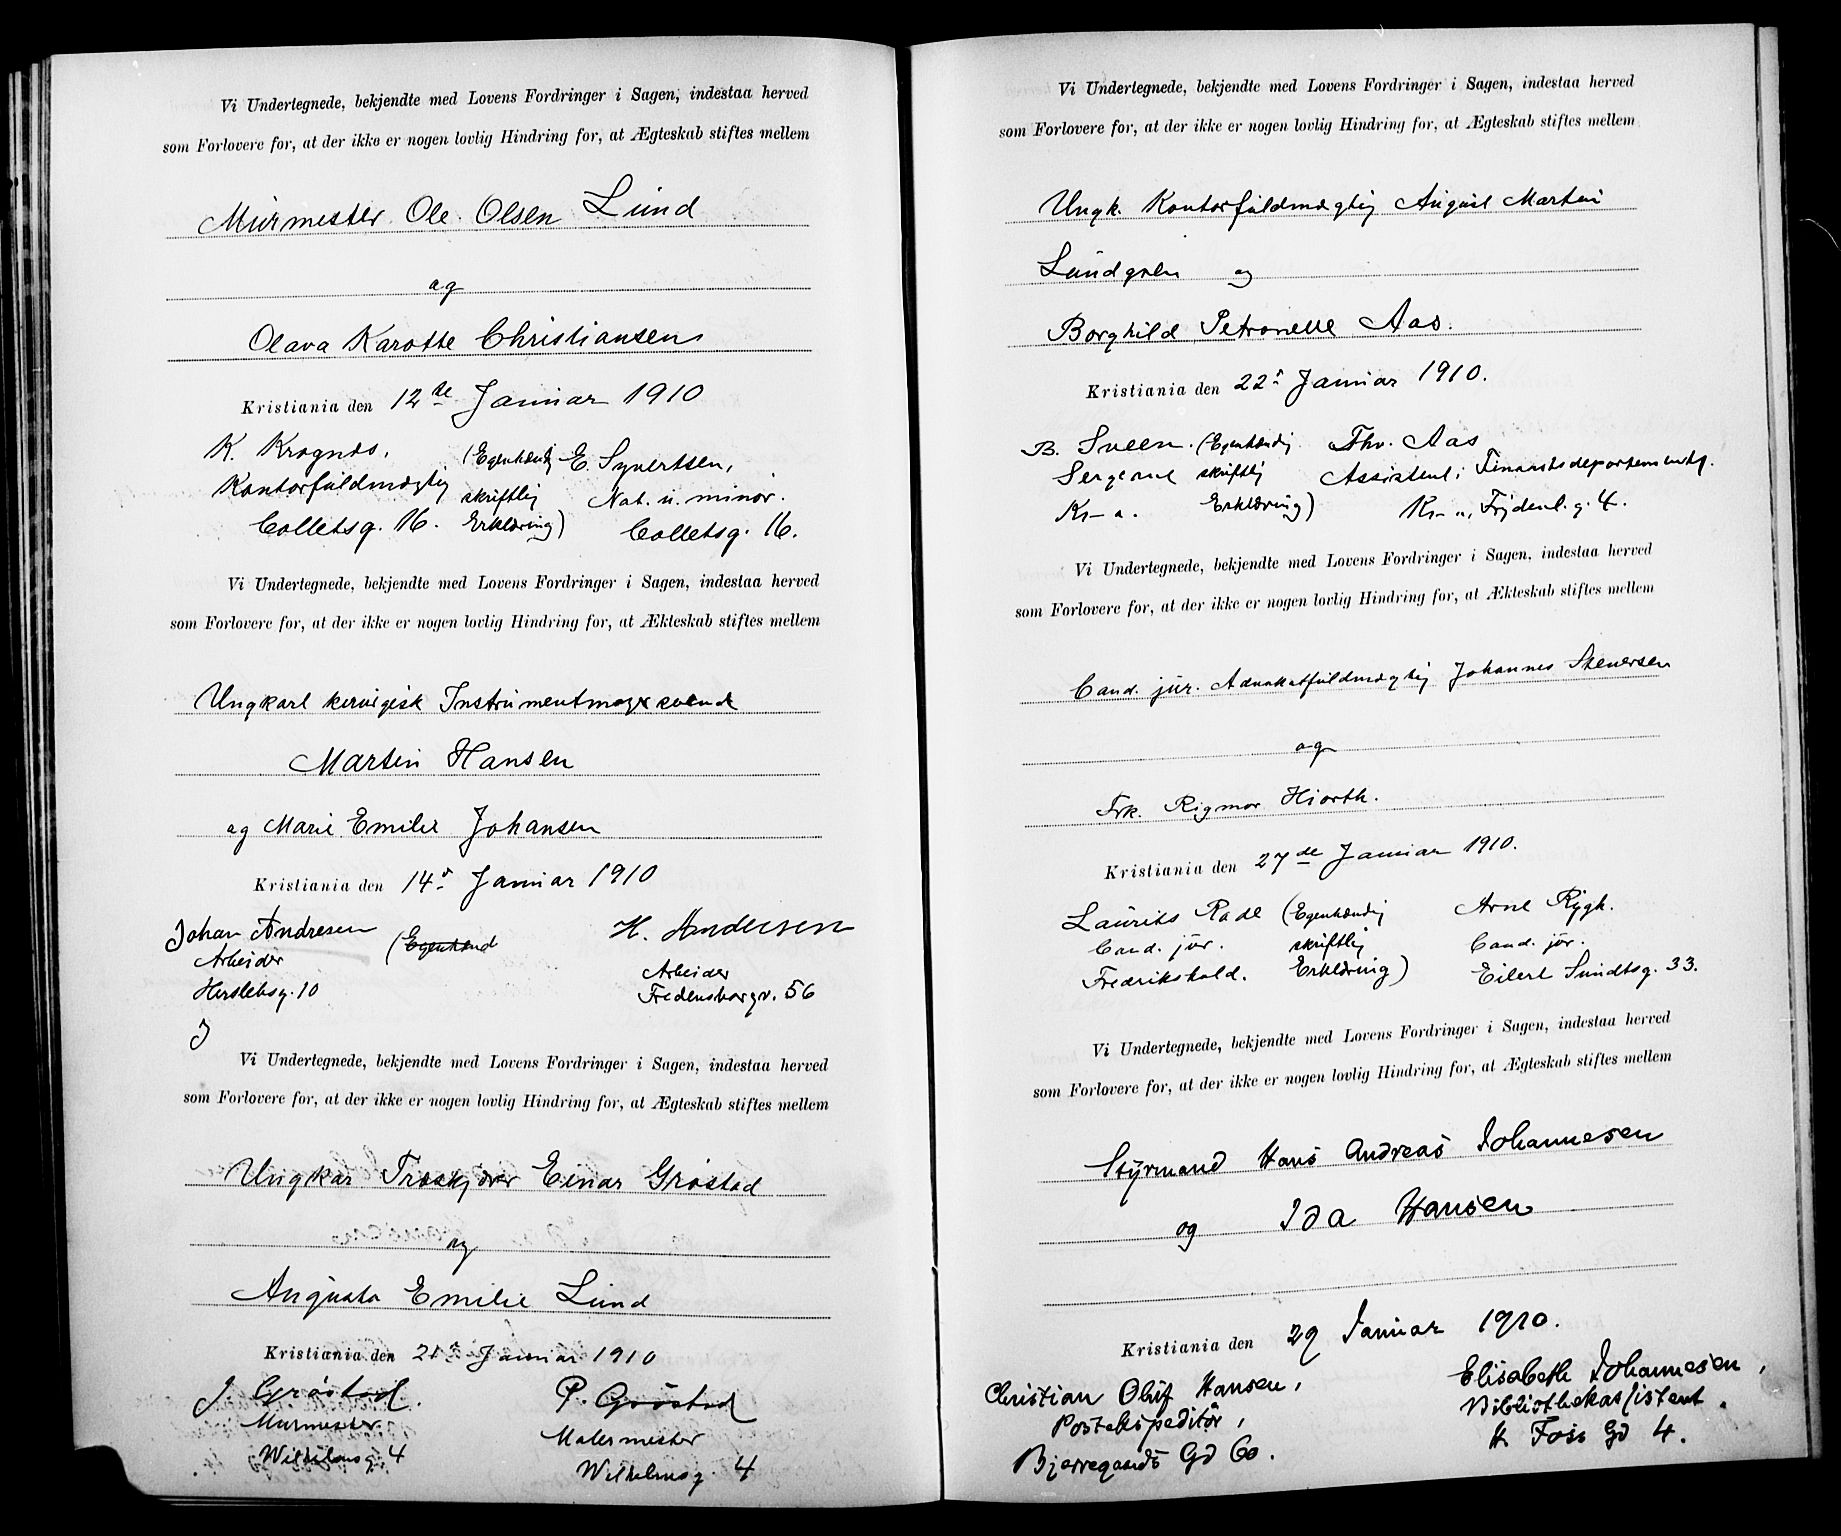 Vi Undertegnede, bekjendte med Lovens Fordringer i Sagen, indestaa herved
som Forlovere for, at der ikke er nogen lovlig Hindring for, at Ægteskab stiftes mellem
Murmester Ole Olsen Lund
og
Olava Karotte Christiansen
Kristiania den 12te Januar 1910
K. Krognæs, (Egenhændig E. Syvertsen,
Kontorfuldmægtig skriftlig Nat. u. minor.
Colletsg. 16. Erklæring) Colletsg. 16.
Vi Undertegnede, bekjendte med Lovens Fordringer i Sagen, indestaa herved
som Forlovere for, at der ikke er nogen lovlig Hindring for, at Ækteskab stiftes mellem
Ungkarl kirurgisk Instrumentmagersvend
Martin Hansen
og Marie Emilie Johansen
Kristiania den 14de Januar 1910
Johan Andresen (Egenhænd H. Andersen
Arbeider Arbeider
Herslebsg. 10 Fredensborgv. 56
J
Vi Undertegnede, bekjendte med Lovens Fordringer i Sagen, indestaa herved
som Forlovere for, at der ikke er nogen lovlig Hindring for, at Ægteskab stiftes mellem
Ungkar Træskjærer Einar Grøstad
og
Augusta Emilie Lund
Kristiania den 21de Januar 1910
J. Grøstad. P. Grøstad
Murmester Malermester
Wilhelmsg. 4 Wilhelmsg. 4
Vi Undertegnede, bekjendte med Lovens Fordringer i Sagen, indestaa herved
som Forlovere for, at der ikke er nogen lovlig Hindring for, at Ægteskab stiftes mellem
Ungk. Kontorfuldmægtig August Martin
Lundgren og
Borghild Petronelle Aas.
Kristiania den 22de Januar 1910.
B. Sveen. (Egenhændig Thv. Aas
Sergeant skriftlig Assistent i Finantsdepartementet.
Kr-a. Erklæring) Kr-a, Frydenl. g. 4.
Vi Undertegnede, bekjendte med Lovens Fordringer i Sagen, indestaa herved
som Forlovere for, at der ikke er nogen lovlig Hindring for, at Ækteskab stiftes mellem
Cand. jur. Advokatfuldmægtig Johannes Stenersen
og
Frk. Rigmor Hiorth.
Kristiania den 27de Januar 1910.
Laurits Rade (Egenhændig Arne Rygh.
Cand. jur. skriftlig Cand. jur.
Fredrikshald. Erklæring) Eilert Sundtsg. 33.
Vi Undertegnede, bekjendte med Lovens Fordringer i Sagen, indestaa herved
som Forlovere for, at der ikke er nogen lovlig Hindring for, at Ægteskab stiftes mellem
Styrmand Hans Andreas Johannesen
og Ida Hansen
Kristiania den 29 Januar 1910.
Christian Oluf Hansen, Elisabeth Johannesen,
Postekspeditør, Bibliothekassistent.
Bjerregaards Gd 60. H. Foss Gd 4.